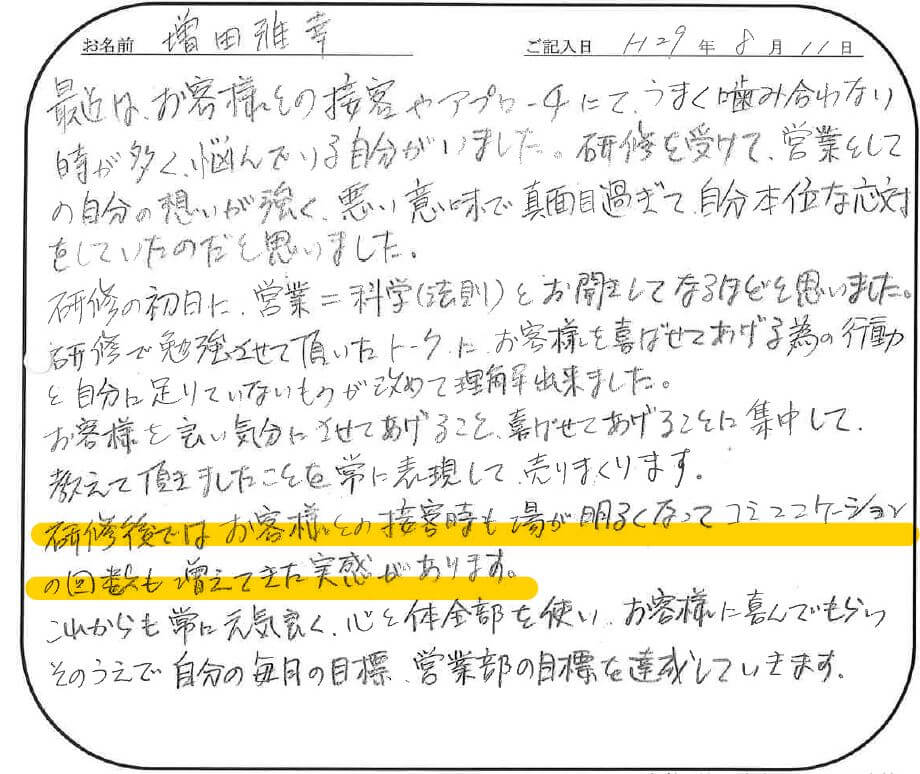 お名前 増田雅幸 ご記入日 H29年 8月 11日
最近は、お客様との接客やアプローチにて、うまく噛み合わない
時が多く、悩んでいる自分がいました。研修を受けて、営業として
の自分の想いが強く、悪い意味で真面目過ぎて、自分本位な応対
をしていたのだと思いました。
研修の初日に、営業=科学(法則)とお聞きしてなるほどと思いました。
研修で勉強させて頂いたトークに、お客様を喜ばせてあげる為の行動
と自分に足りていないものが改めて理解出来ました。
お客様を良い気分にさせてあげること、喜ばせてあげることに集中して、
教えて頂きましたことを常に表現して、売りまくります。
研修後ではお客様との接客時も場が明るくなってコミュニケーション
の回数も増えてきた実感があります。
これからも常に元気良く、心と体全部を使い、お客様に喜んでもらい
そのうえで自分の毎月の目標、営業部の目標を達成していきます。